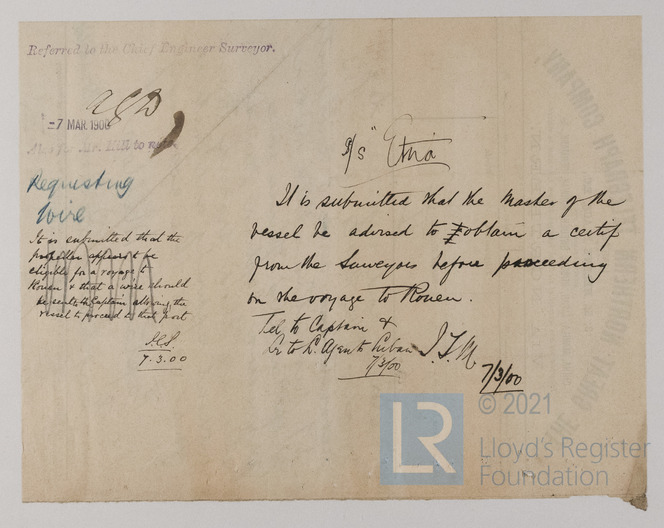 Referred to the Chief Engineer Surveyor.
-7 MAR. 1900
Also for Mr. Hill to note.
Requesting
Wire
It is submitted that the
propeller appears to be
eligible for a voyage to
Rouen & that a wire should
be sent to the Captain allowing the
vessel to proceed to that port
7.3.00
S/S "Etna
It is submitted that the Master of the
vessel be advised to obtain a certif
from the Surveyors before proceeding
on the voyage to Rouen.
Tel to Captain &
Le to L. Agents
7/3/00
7/3/00
© 2021
LR
Lloyd's Register
Foundation